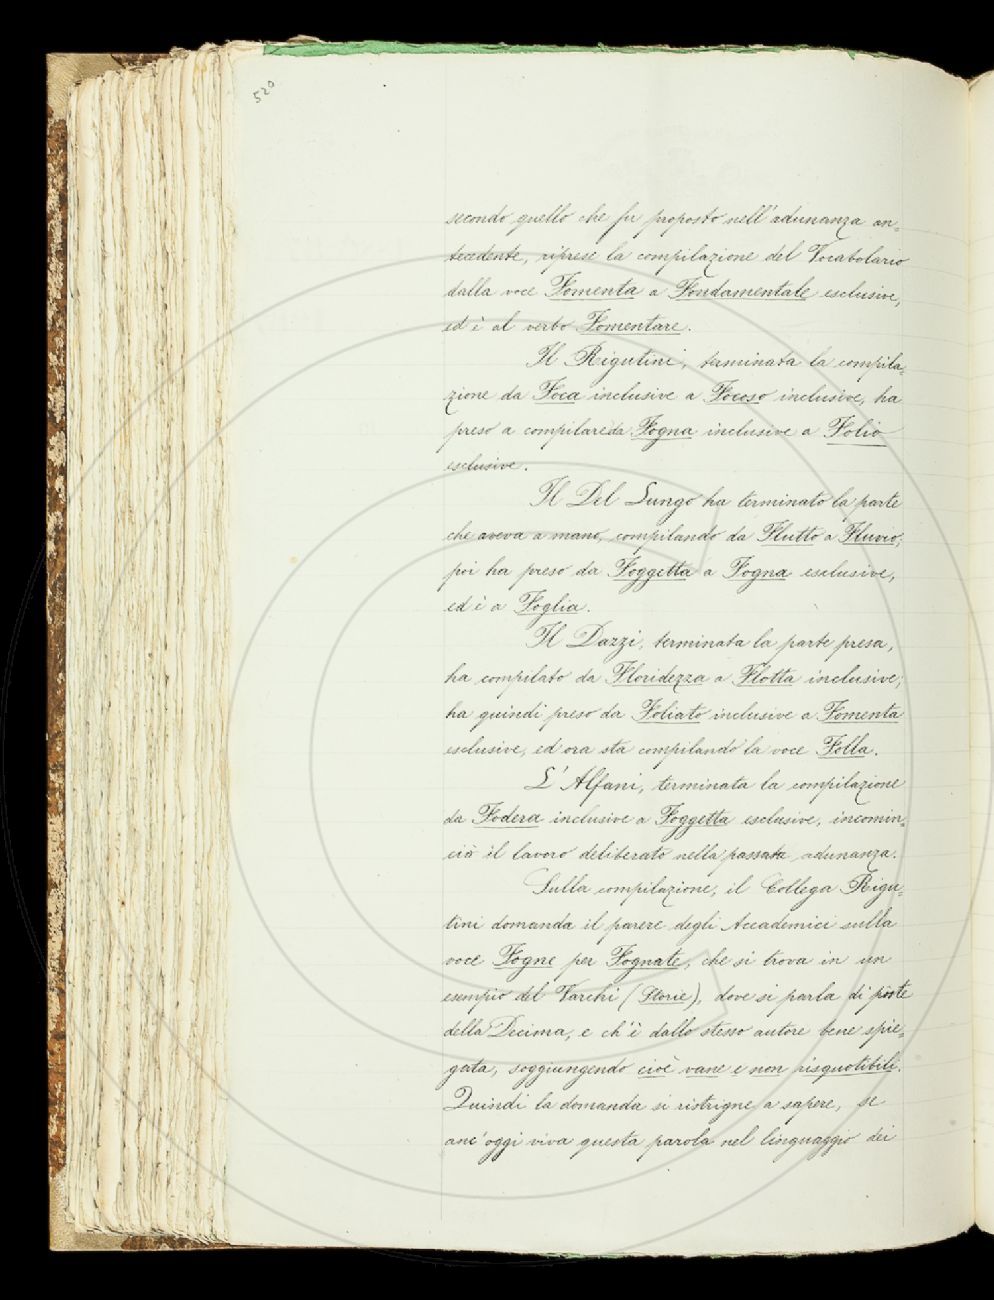 520
secondo quello che fu proposto nell'adunanza an-
tecedente, riprese la compilazione del Vocabolario
dalla voce Fomenta a Fondamentale esclusive,
ed è al verbo Fomentare.
Il Rigutini, terminata la compila-
zione da Foca inclusive a Focoso inclusive, ha
preso a compilare da Fogna inclusive a Folio
esclusive.
Il Del Lungo ha terminato la parte
che aveva a mano, compilando da Flutto a Fluvio;
poi ha preso da Foggetta a Fogna esclusive,
ed è a Foglia.
Il Dazzi, terminata la parte presa,
ha compilato da Floridezza a Flotta inclusive;
ha quindi preso da Foliato inclusive a Fomenta
esclusive, ed ora sta compilando la voce Folla.
L'Alfani, terminata la compilazione
da Fodera inclusive a Foggetta esclusive, incomin-
ciò il lavoro deliberato nella passata adunanza.
Sulla compilazione, il Collega Rigu-
tini domanda il parere degli Accademici sulla
voce Fogne per Fognate, che si trova in un
esempio del Varchi (Storie), dove si parla di poste
della Decima, e ch'è dallo stesso autore bene spie-
gata, soggiungendo cioè vane e non risquotibili.
Quindi la domanda si ristrigne a sapere, se
anc'oggi viva questa parola nel linguaggio dei